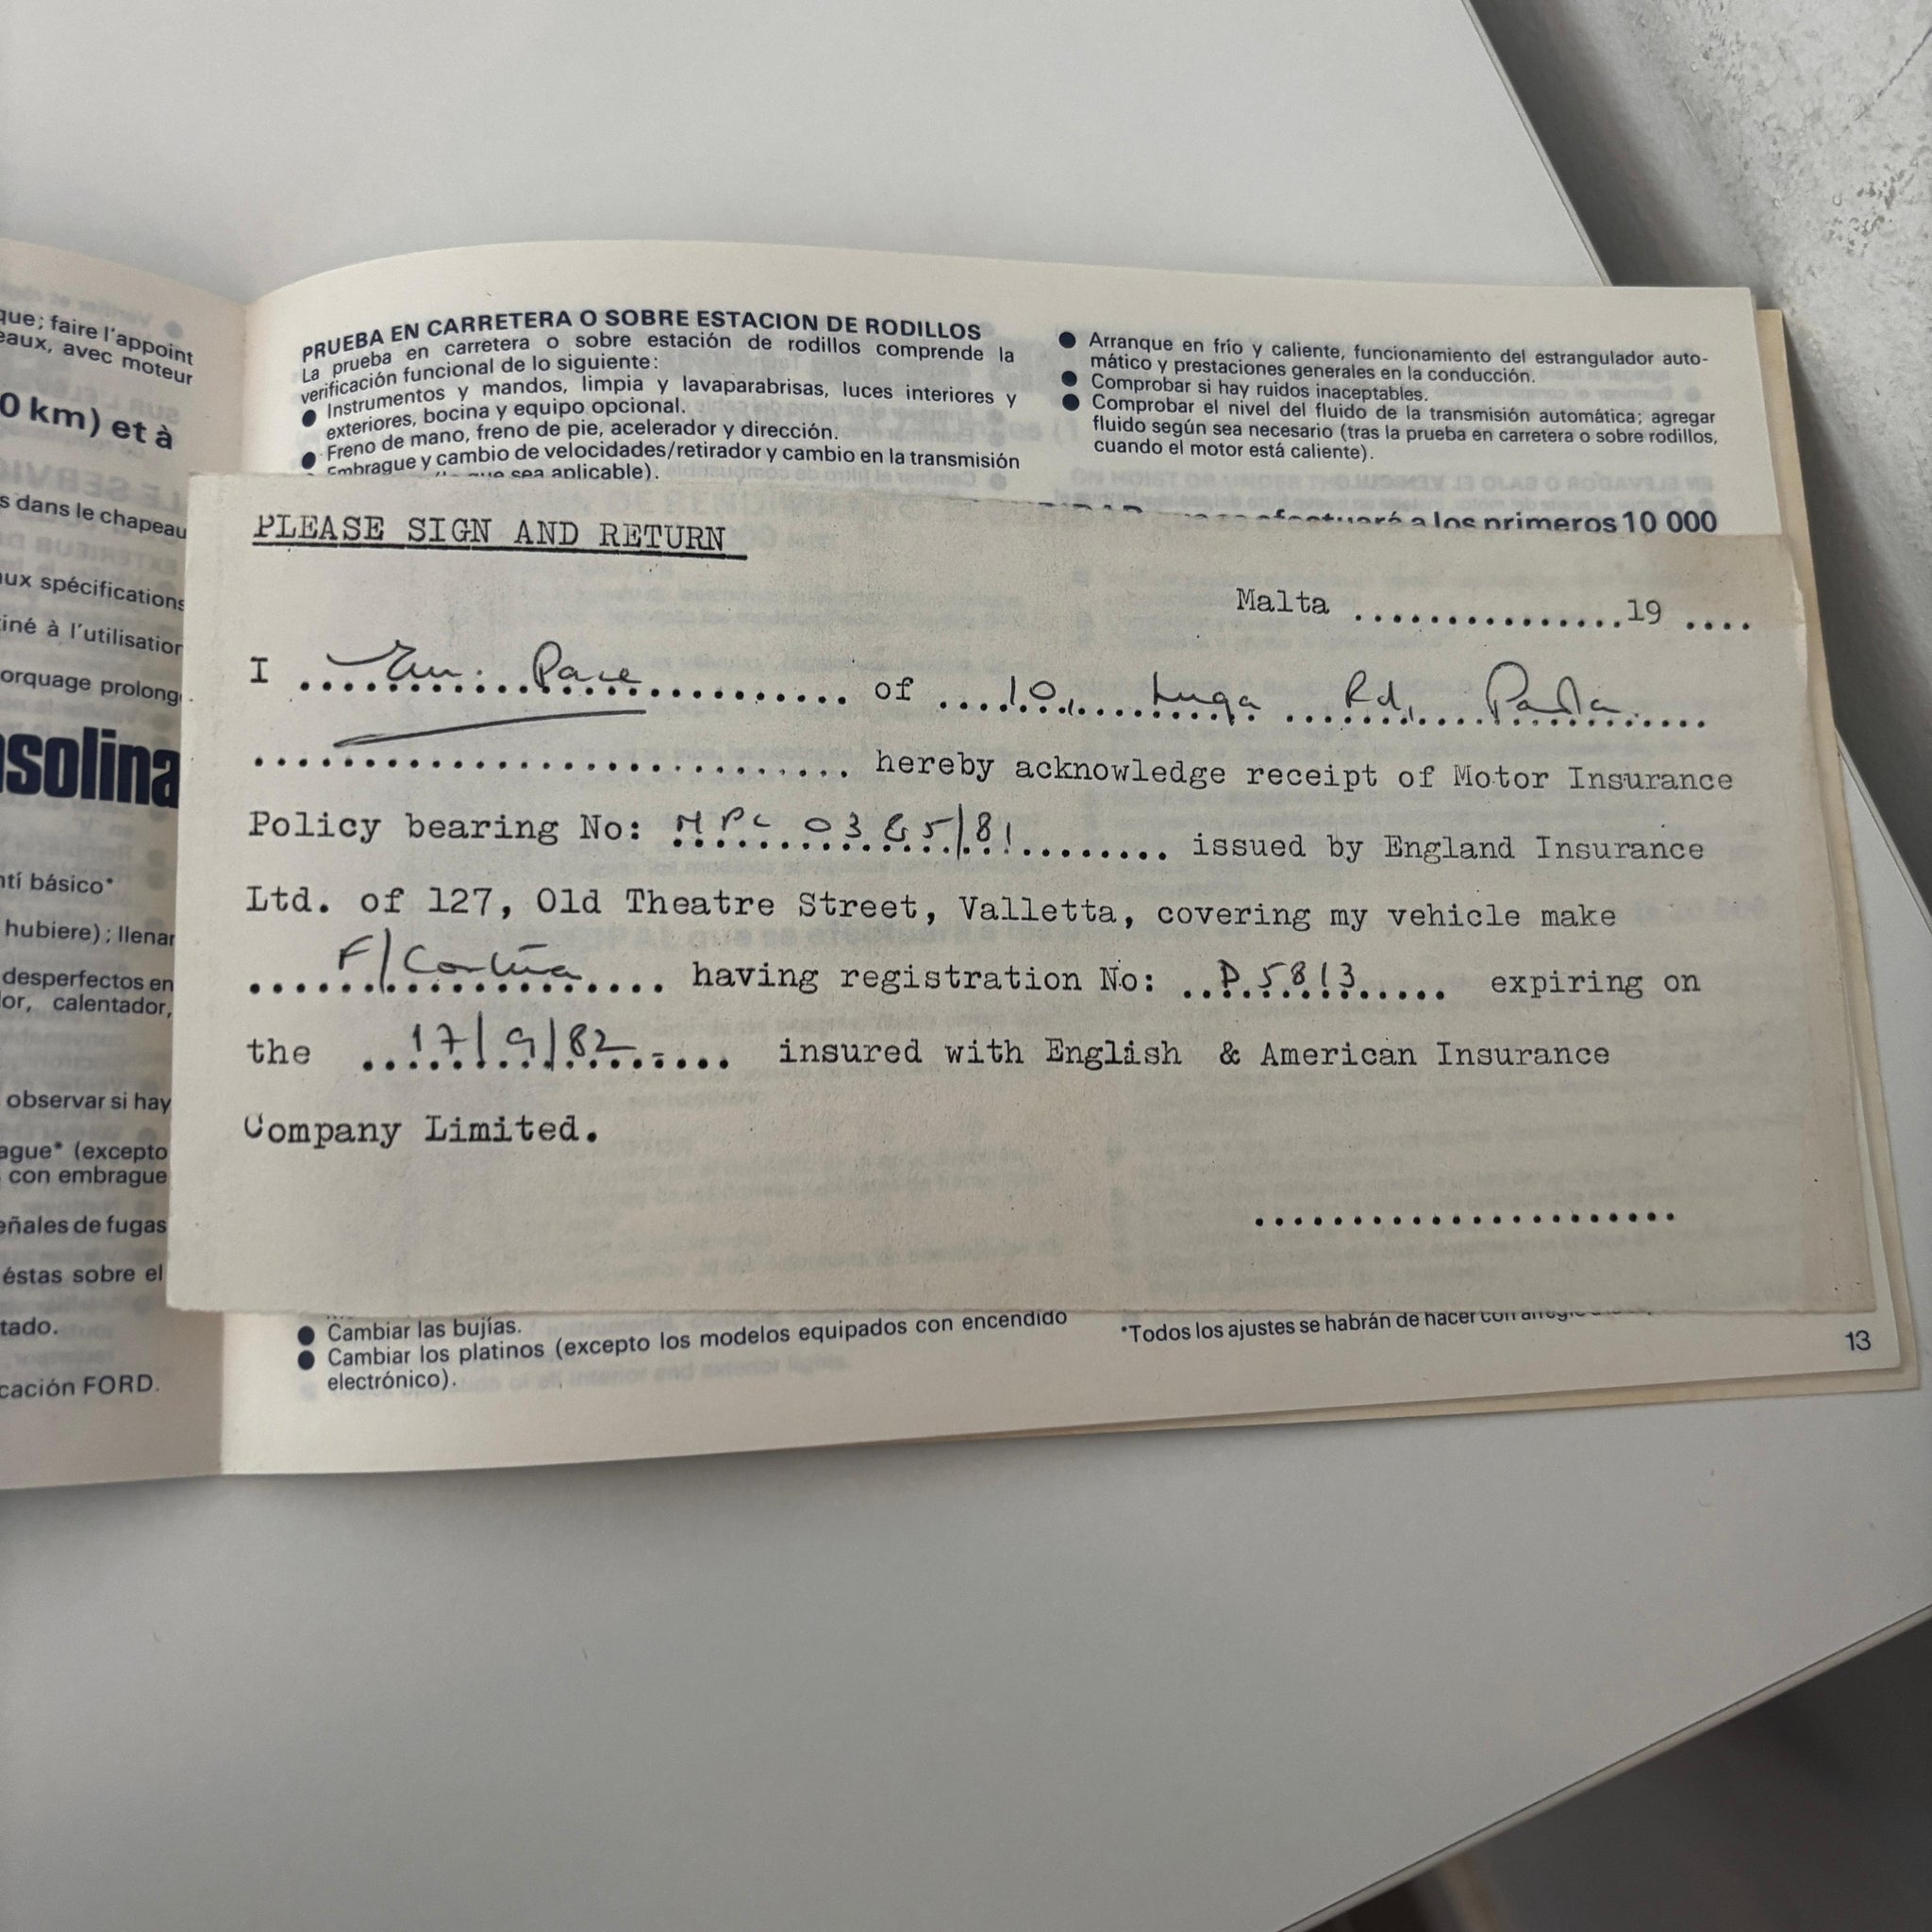 que; faire l'appoint
eaux, avec moteur
0 km) et à
s dans le chapeau
aux spécifications
iné à l'utilisation
orquage prolong
solina
ntí básico*
hubiere); llenar
desperfectos en
or, calentador,
observar si hay
ague* (excepto
con embrague
eñales de fugas
éstas sobre el
tado.
cación FORD.
PRUEBA EN CARRETERA O SOBRE ESTACION DE RODILLOS
La prueba en carretera o sobre estación de rodillos comprende la
verificación funcional de lo siguiente:
● Instrumentos y mandos, limpia y lavaparabrisas, luces interiores y
exteriores, bocina y equipo opcional.
● Freno de mano, freno de pie, acelerador y dirección.
● Embrague y cambio de velocidades/retirador y cambio en la transmisión
que sea aplicable).
● Arranque en frío y caliente, funcionamiento del estrangulador auto-
mático y prestaciones generales en la conducción.
● Comprobar si hay ruidos inaceptables.
● Comprobar el nivel del fluido de la transmisión automática; agregar
fluido según sea necesario (tras la prueba en carretera o sobre rodillos,
cuando el motor está caliente).
efectuará a los primeros 10 000
PLEASE SIGN AND RETURN
Malta ...............19 ....
I ... Em. Pace ............ of ... 10, Luqa Rd, Paola.
............................. hereby acknowledge receipt of Motor Insurance
Policy bearing No: MPC 0365/81 ........ issued by England Insurance
Ltd. of 127, Old Theatre Street, Valletta, covering my vehicle make
..... F/Cortina .... having registration No: ..P.5813..... expiring on
the ..17/9/82-.... insured with English & American Insurance
Company Limited.
.......................
● Cambiar las bujías.
● Cambiar los platinos (excepto los modelos equipados con encendido
electrónico).
*Todos los ajustes se habrán de hacer con
13